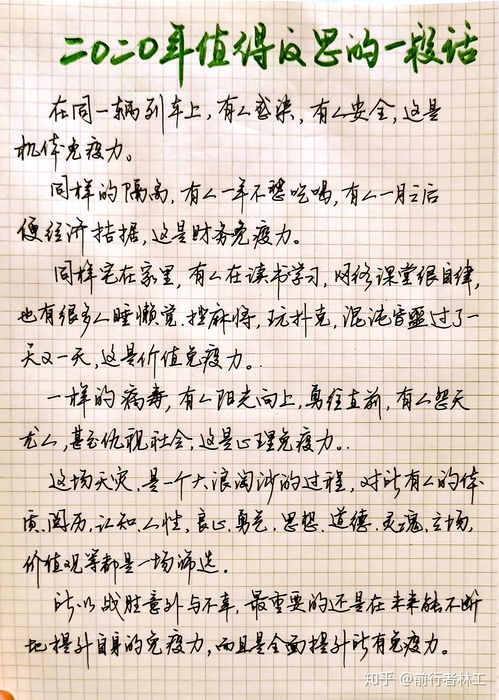 二〇二〇年值得反思的一段话
在同一辆列车上，有人感染，有人安全，这是
机体免疫力。
同样的隔离，有人一年不愁吃喝，有人一月之后
便经济拮据，这是财务免疫力。
同样宅在家里，有人在读书学习，网络课堂很自律，
也有很多人睡懒觉、搓麻将，玩扑克，混沌昏噩过了一
天又一天，这是价值免疫力。
一样的病毒，有人阳光向上，勇往直前，有人怨天
尤人，甚至仇视社会，这是心理免疫力。
这场天灾，是一个大浪淘沙的过程，对所有人的体
质、阅历、认知、人性，良心、勇气，思想、道德、灵魂、立场，
价值观等都是一场筛选。
所以战胜意外与不幸，最重要的还是在未来能不断
地提升自身的免疫力，而且是全面提升所有免疫力。
知乎 @前行者林工